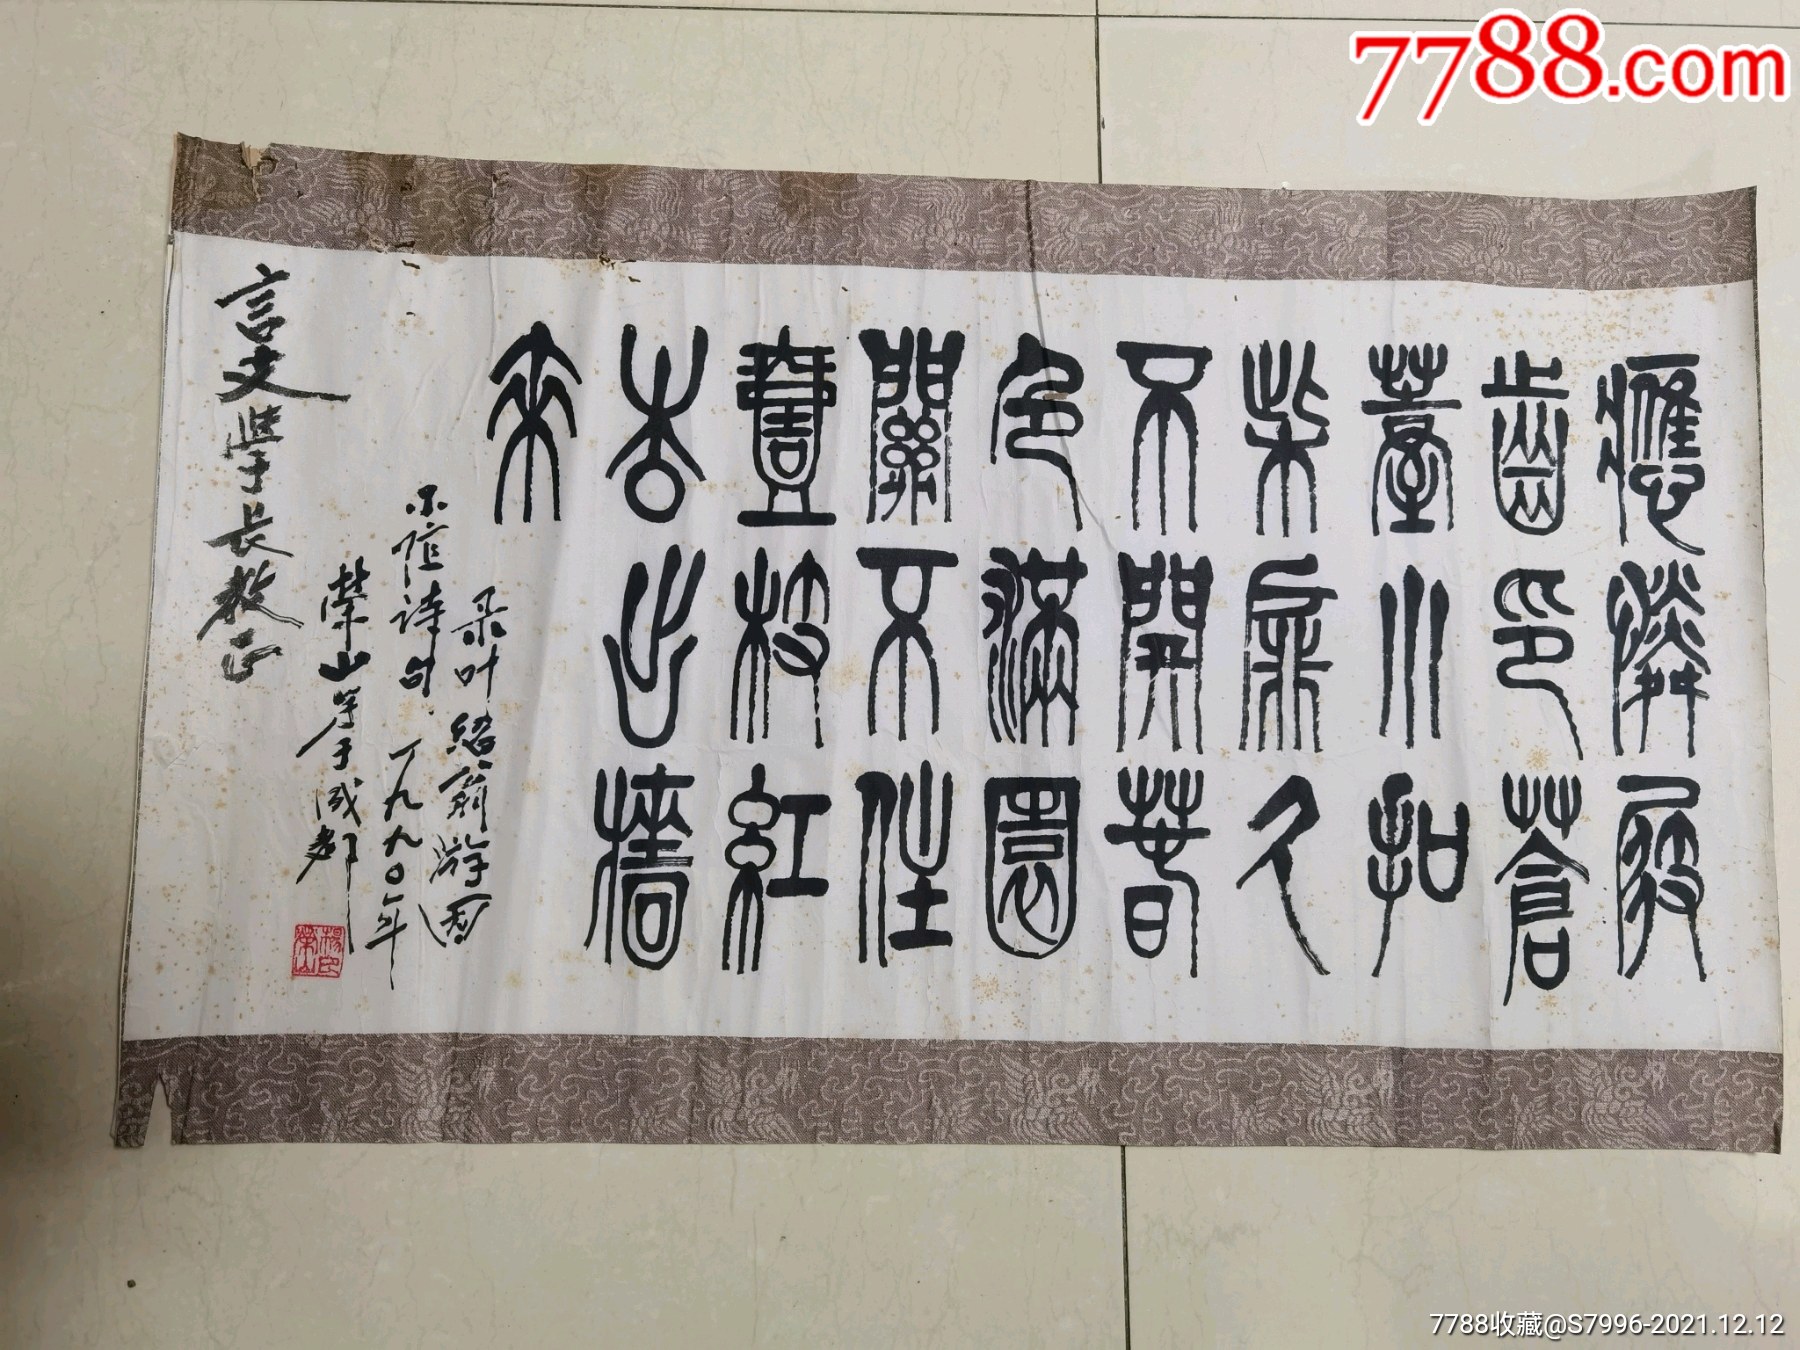 7788.com
應憐屐
齒印蒼
薹小扣
柴扉久
不開春
色滿園
關不住
壹枝紅
杏出牆
來
录叶紹翁游园
不值詩句一九九〇年
榮山书于成都
楊印
榮山
言文學长教正
7788收藏@S7996-2021.12.12